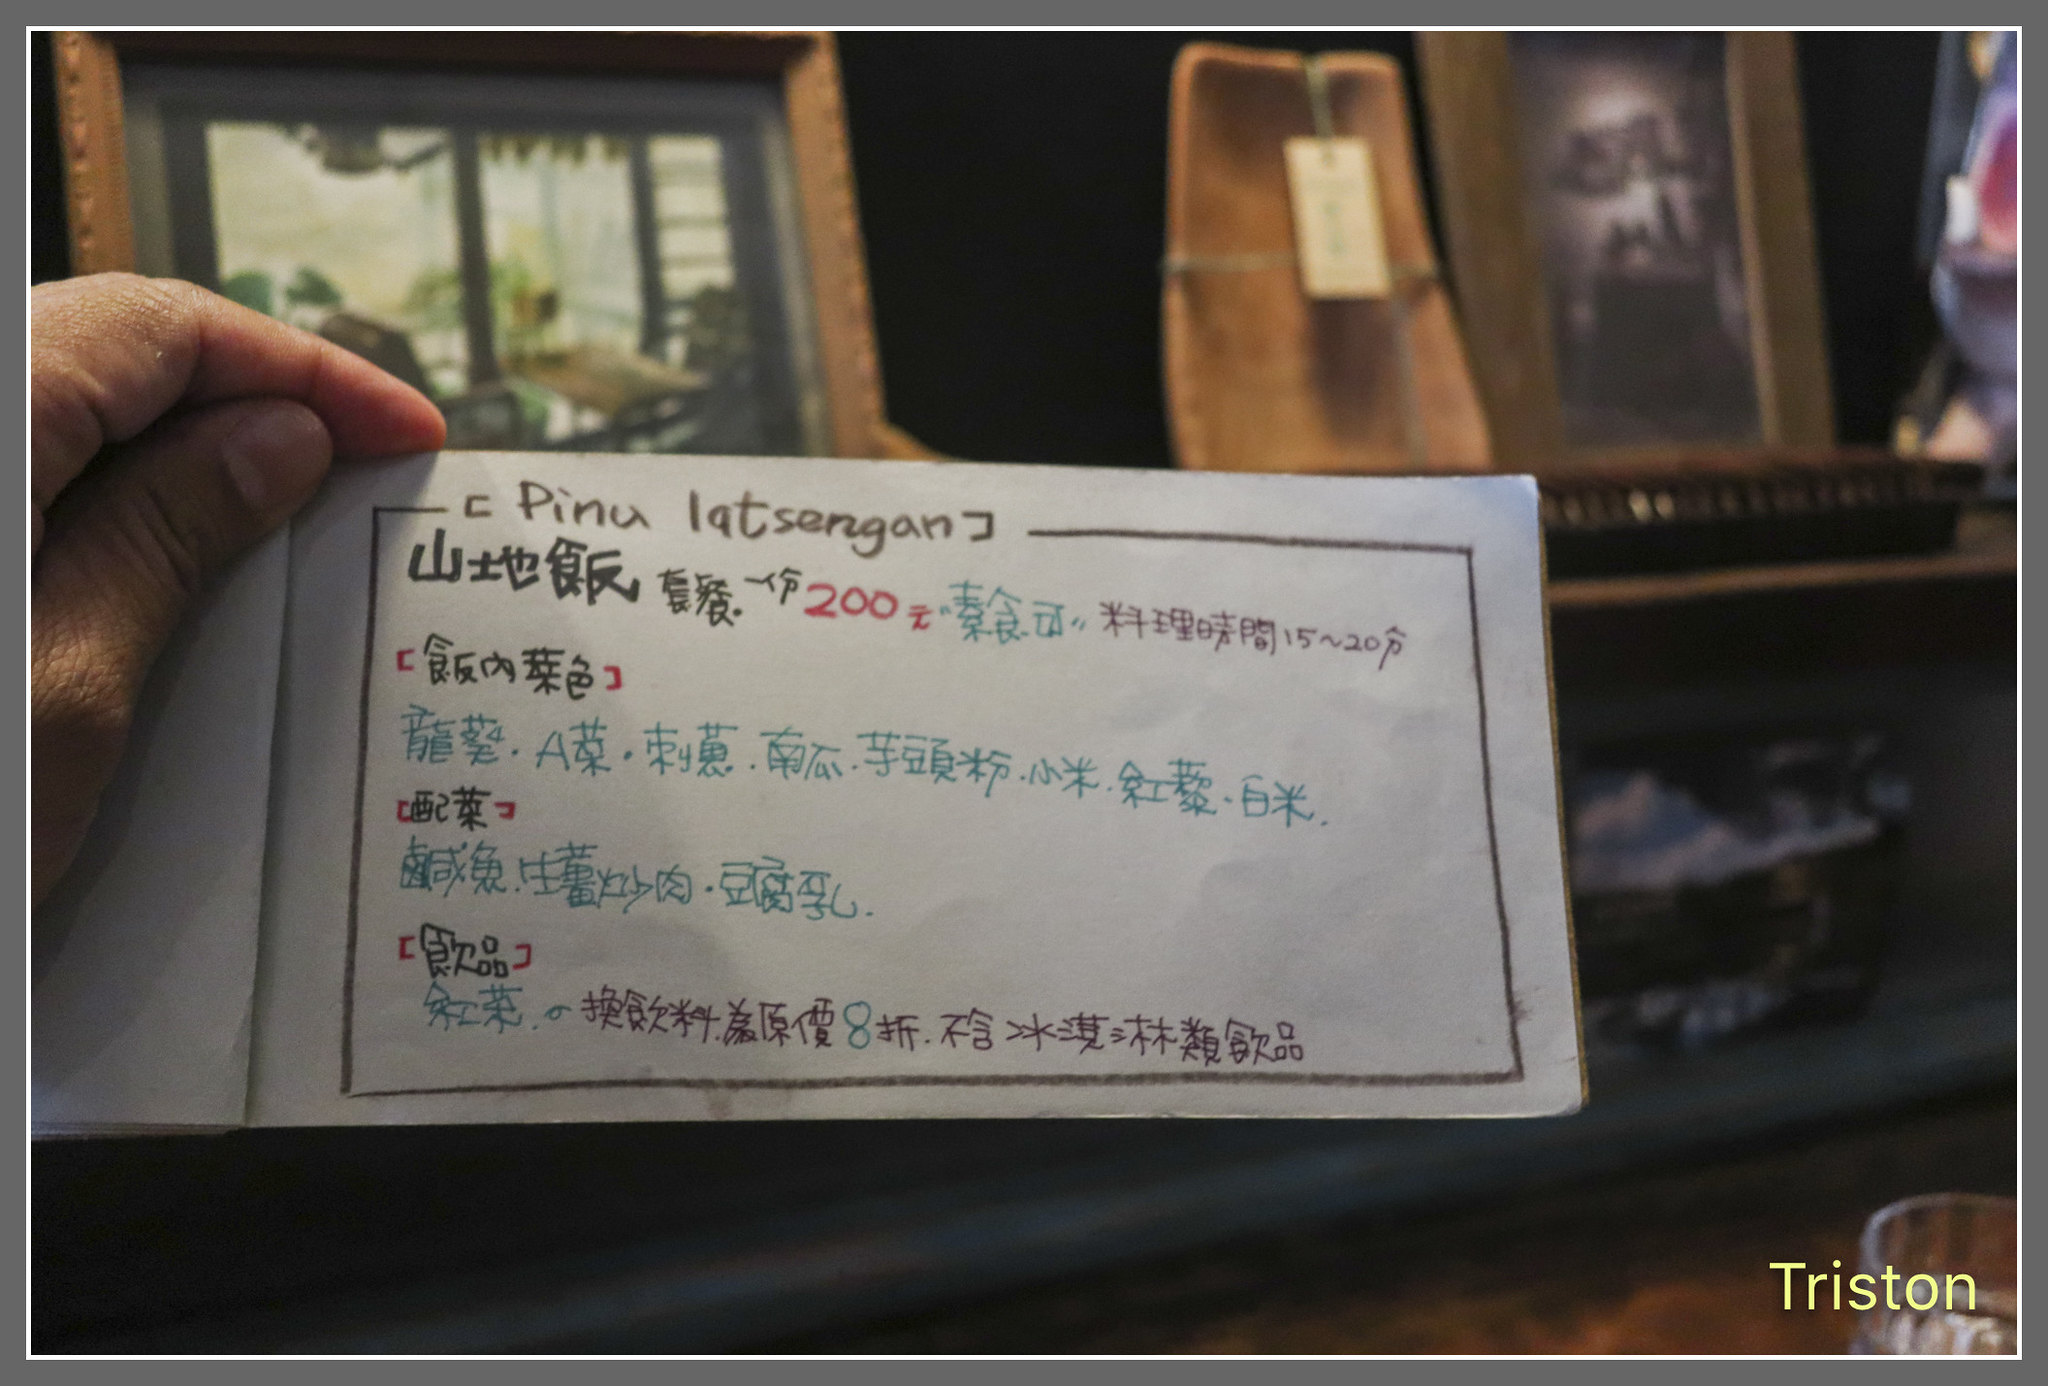 [Pinu latsengan]
山地飯 套餐.一份200元"素食可" 料理時間15~20分
[飯內菜色]
龍葵.A菜.刺蔥.南瓜.芋頭粉.小米.紅藜.白米.
[配菜]
鹹魚.生薑炒肉.豆腐乳.
[飲品]
紅茶.。換飲料為原價8折.不含冰淇淋類飲品
Triston